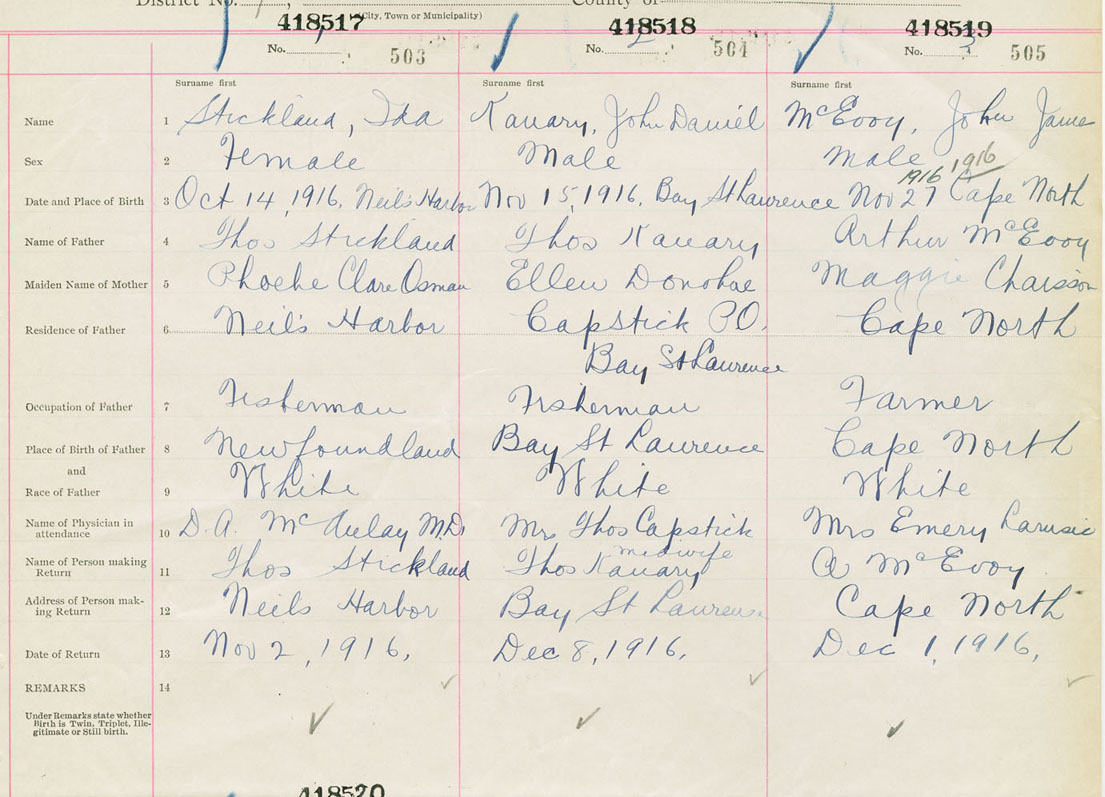 District No. 1, County of
(City, Town or Municipality)
418517 418518 418519
No. 1 503 No. 2 504 No. 3 505
Surname first Surname first Surname first
Name 1 Stickland, Ida Kanary, John Daniel McEvoy, John James
Sex 2 Female Male Male
1916 1916
Date and Place of Birth 3 Oct 14, 1916, Neil's Harbor Nov 15, 1916, Bay St Laurence Nov 27 Cape North
Name of Father 4 Thos Stickland Thos Kanary Arthur McEvoy
Maiden Name of Mother 5 Phoebe Clare Osman Ellen Donohoe Maggie Chaisson
Residence of Father 6 Neil's Harbor Capstick P.O. Cape North
Bay St Laurence
Occupation of Father 7 Fisherman Fisherman Farmer
Place of Birth of Father 8 Newfoundland Bay St Laurence Cape North
and
Race of Father 9 White White White
Name of Physician in
attendance 10 D.A. McAulay M.D. Mrs Thos Capstick Mrs Emery
midwife
Name of Person making
Return 11 Thos Stickland Thos Kanary A McEvoy
Address of Person mak-
ing Return 12 Neils Harbor Bay St Laurence Cape North
Date of Return 13 Nov 2, 1916, Dec 8, 1916, Dec 1, 1916,
REMARKS 14
Under Remarks state whether
Birth is Twin, Triplet, Ille-
gitimate or Still birth.
418520